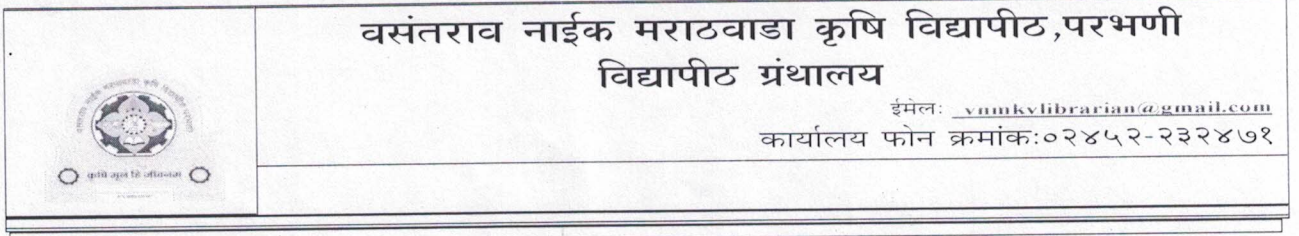 वसंतराव नाईक मराठवाडा कृषि विद्यापीठ,परभणी
विद्यापीठ ग्रंथालय
ईमेल: vnmkvlibrarian@gmail.com
कार्यालय फोन क्रमांक:०२४५२-२३२४७१
कृषि मूलं हि जीवनम